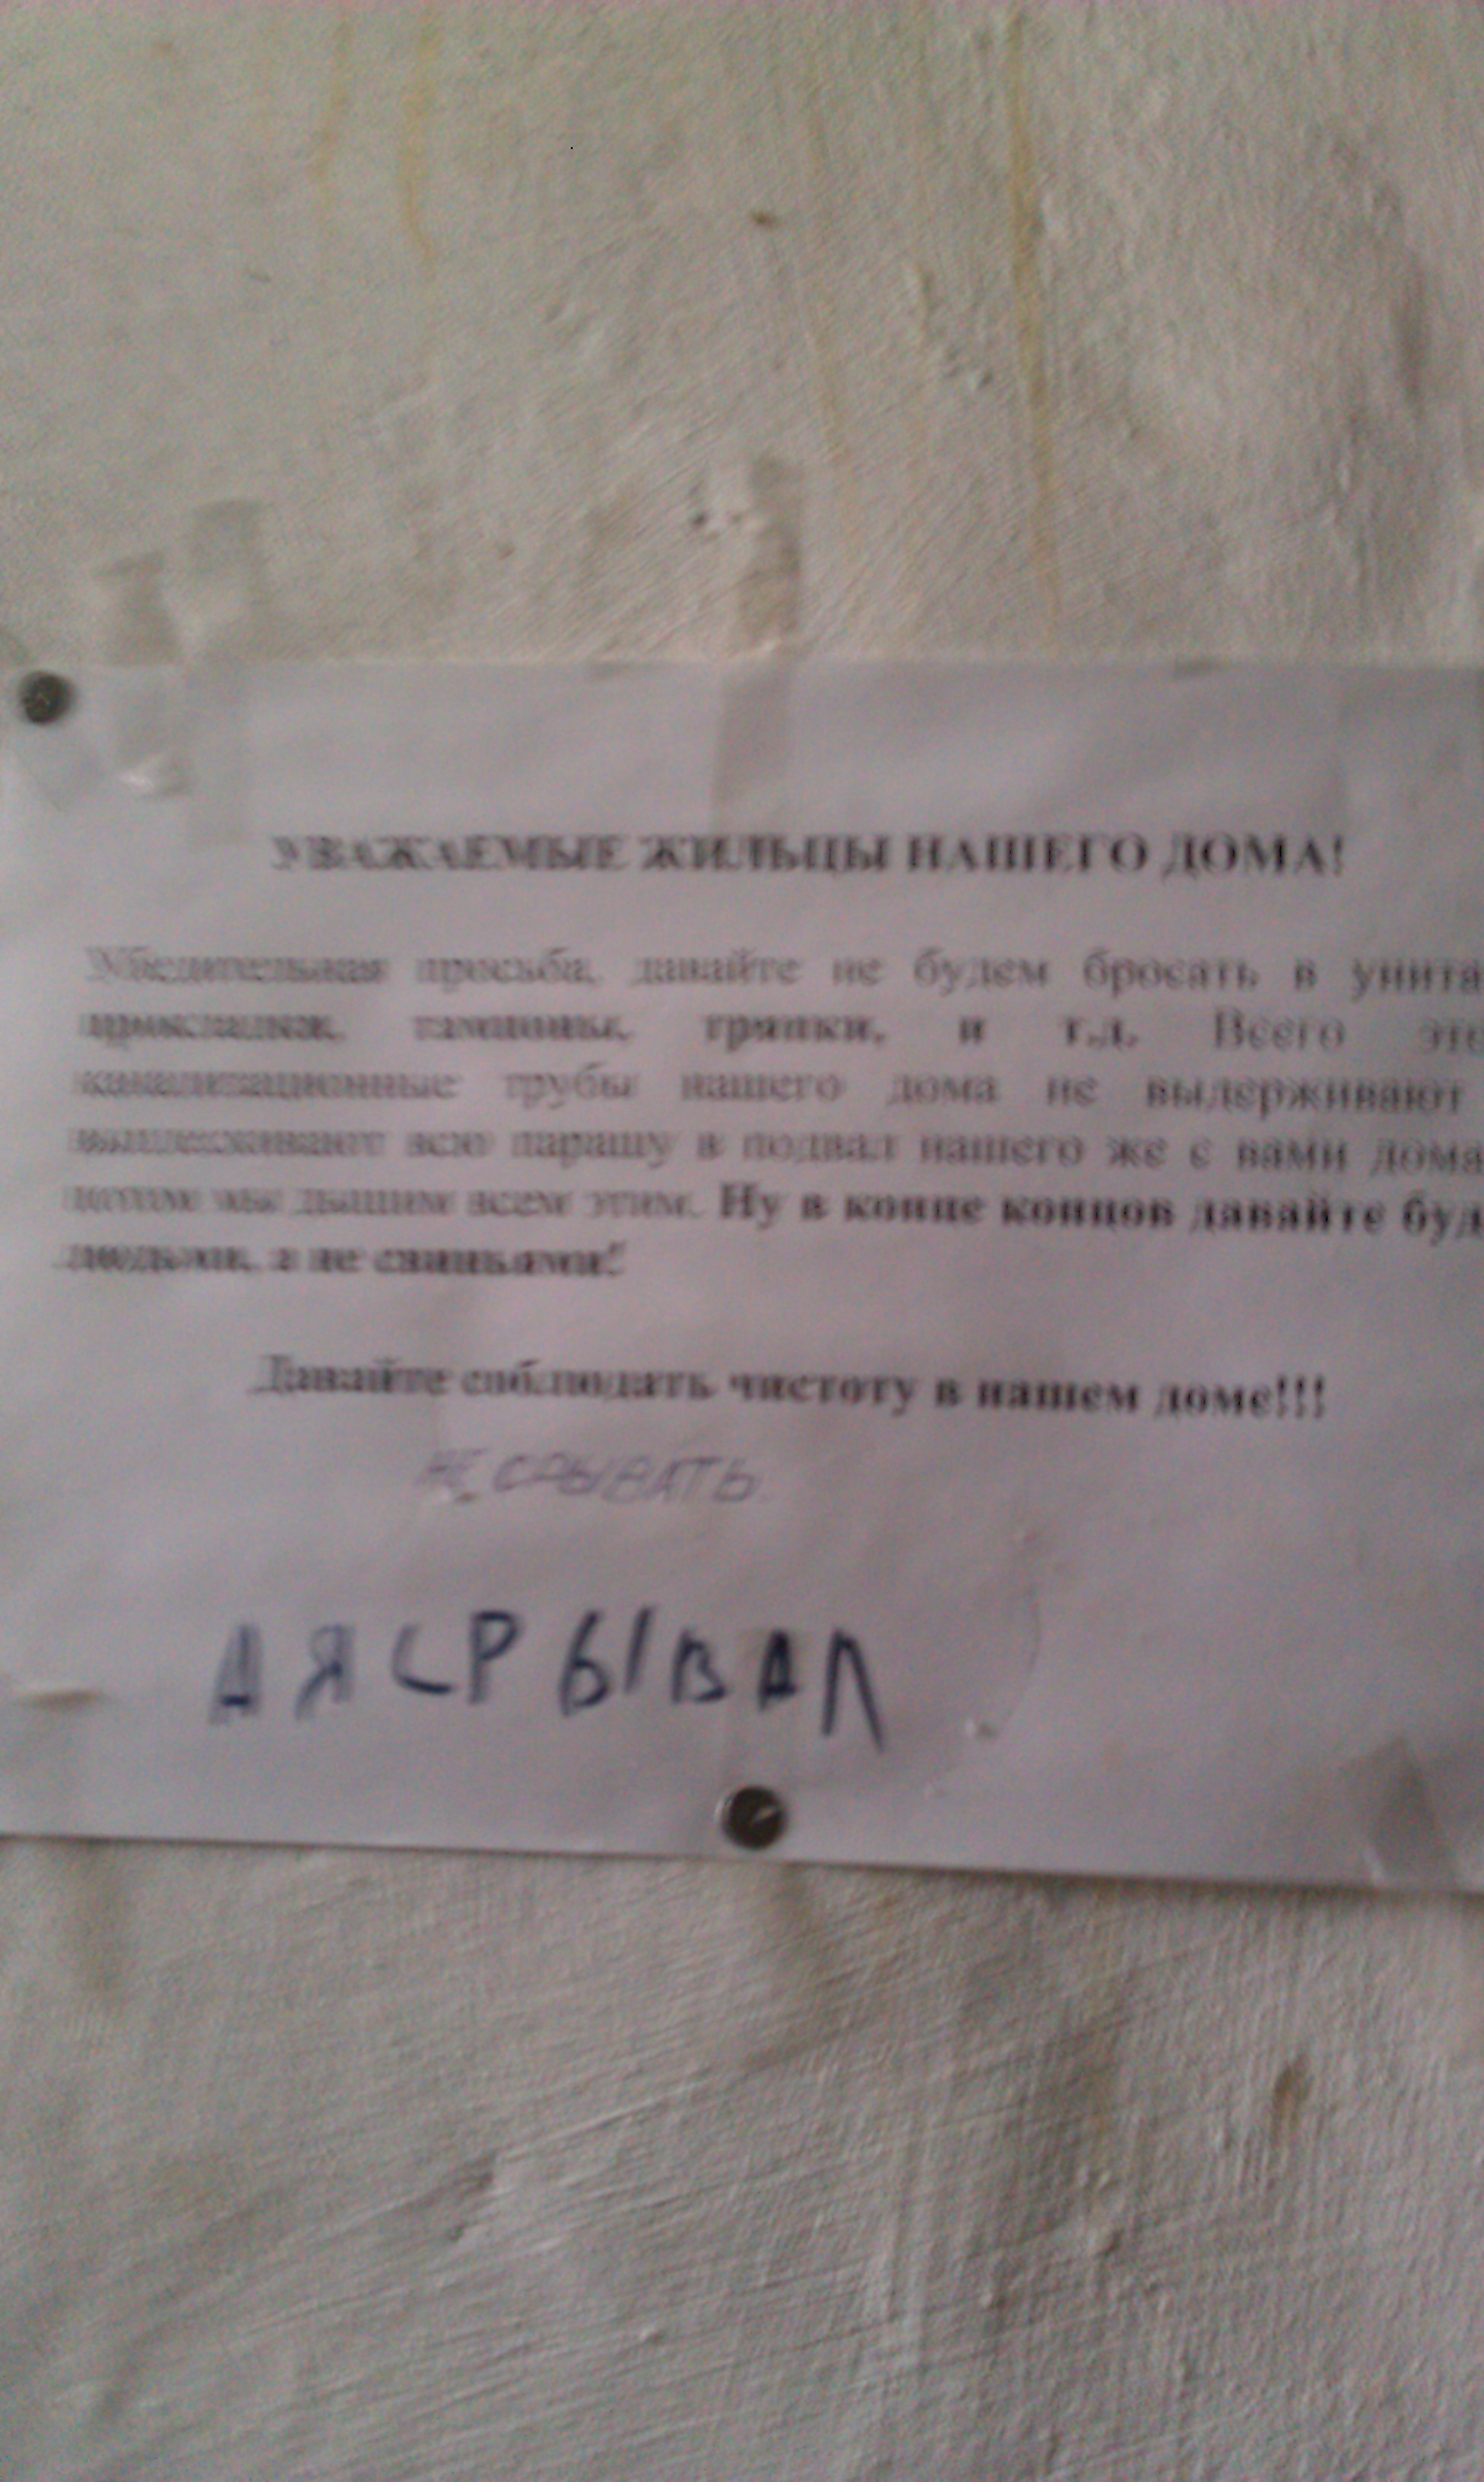 УВАЖАЕМЫЕ ЖИЛЬЦЫ НАШЕГО ДОМА!
Убедительная просьба, давайте не будем бросать в унита
прокладки, тампоны, тряпки, и т.д. Всего это
канализационные трубы нашего дома не выдерживают
выплескивают всю парашу в подвал нашего же с вами дома
потом мы дышим всем этим. Ну в конце концов давайте буд
людьми, а не свиньями!
Давайте соблюдать чистоту в нашем доме!!!
НЕ СРЫВАТЬ
А Я СРЫВАЛ